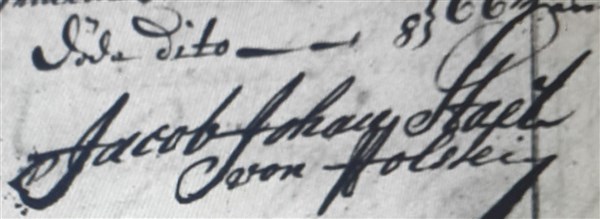 Döde dito — 8} 66
Jacob Johan Stael
von Holstein